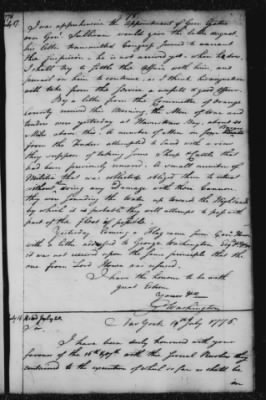 I was apprehensive the appointment of Gen Gates
over Genl Sullivan would give the latter disgust,
his letter transmitted Congress seemed to warrant
the suspicion; he is not arrived yet, when he does,
I shall try to settle the affair with him and
prevail on him to continue, as I think his resignation
will take from the Service a usefull & good officer.
By a letter from the Committee of Orange
County received this Morning, the Men of War and
tenders were yesterday at Haverstraw Bay about 40
Miles above this. A number of Men in four
from the Tender attempted to land with a view
they suppose of taking some Sheep & Cattle that
had been previously removed. A small number of
Militia that was collected obliged them to retreat
without doing any damage with their Cannon.
they were sounding the Water up towards the Highlands
by which it is probable they will attempt to pass with
part of the Fleet if possible.
Yesterday Evening a Flag came from Genl Howe
with a letter addressed to George Washington Esqr
it was not received upon the same principle that the
one from Lord Howe was refused.
I have the honour to be with
great Esteem
Yours &c
G Washington
New York 19th July 1776
Sir,
I have been duly honoured with your
favours of the 16th & 17th with the several Resolves they
contained to the execution of which so far as shall be